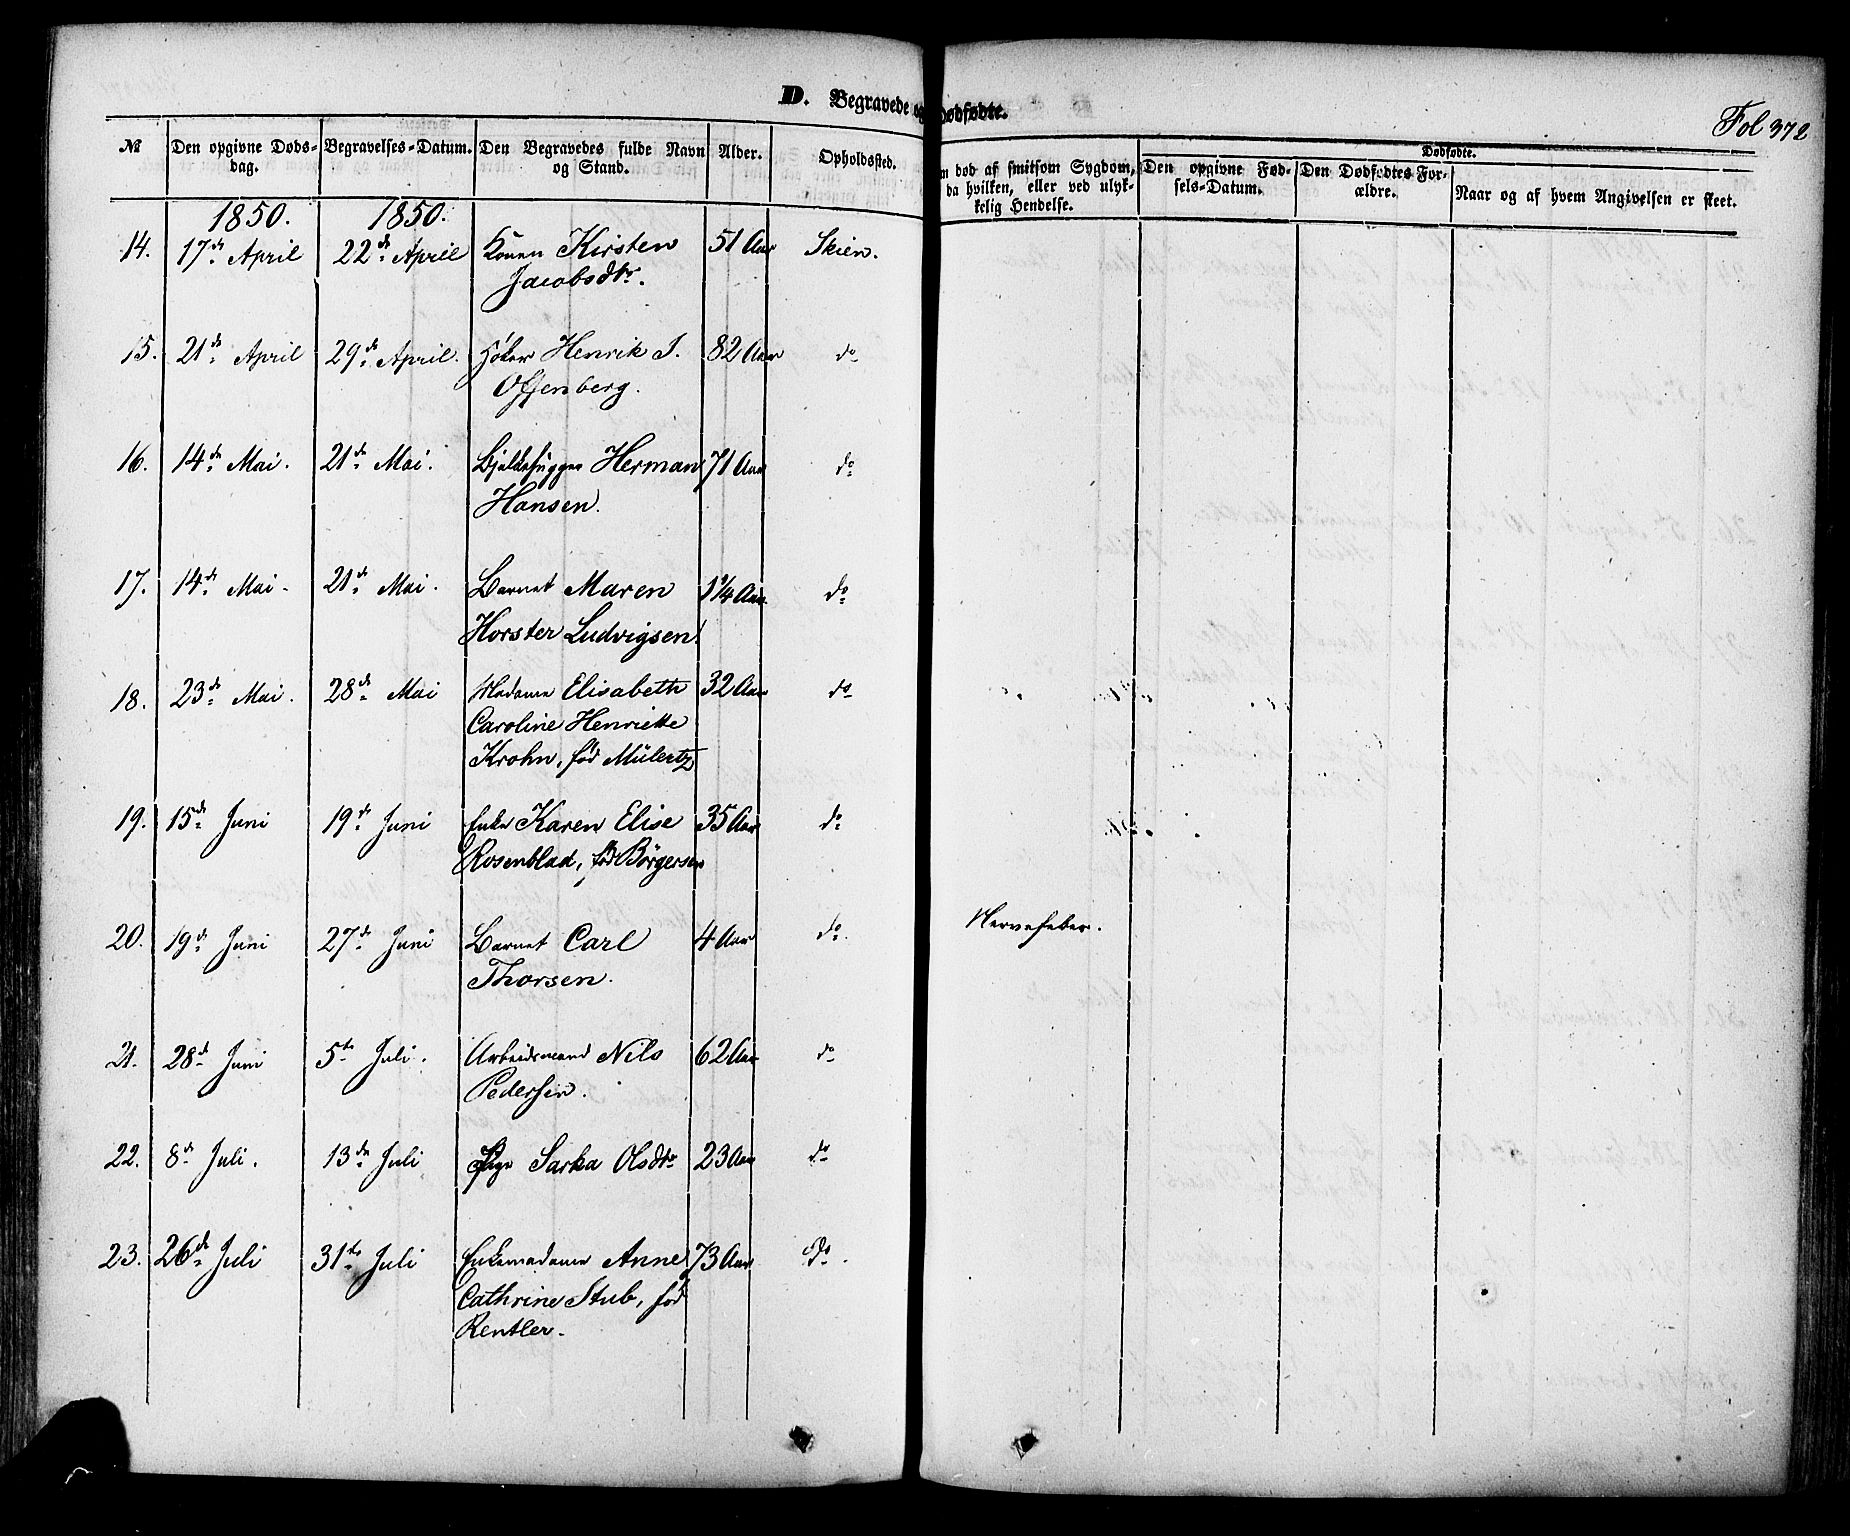 D. Begravede og Dødfødte.
Fol 372
№ Den opgivne Døds- Begravelses-Datum. Den Begravedes fulde Navn Alder. Opholdssted.
dag. og Stand.
m død af smitsom Sygdom,
da hvilken, eller ved ulyk-
kelig Hendelse.
Dødfødte.
Den opgivne Fød- Den Dødfødtes For-
sels-Datum. ældre. Naar og af hvem Angivelsen er skeet.
1850. 1850.
14. 17de April 22de April Konen Kirsten 51 Aar Skien.
Jacobsdtr.
15. 21de April 29de April. Høker Henrik J. 82 Aar do
Offenberg.
16. 14de Mai. 21de Mai. Bjelkehugger Herman 71 Aar do
Hansen.
17. 14de Mai. 21de Mai. Barnet Maren 1 1/4 Aar do
Horster Ludvigsen.
18. 23de Mai. 28de Mai Madame Elisabeth 32 Aar do
Caroline Henriette
Krohn, fød Mülertz
19. 15de Juni 19de Juni Enke Karen Elise 35 Aar do
Rosenblad, fød Børgersen
20. 19de Juni 27de Juni Barnet Carl 4 Aar do. Nervefeber.
Thorsen.
21. 28de Juni 5te Juli. Arbeidsmand Nils 62 Aar do
Pedersen.
22. 8de Juli. 13de Juli Pige Sarka Olsdtr 23 Aar do
23. 26de Juli 31te Juli Enkemadame Anne 73 Aar do.
Cathrine Stub, fød
Rentler.